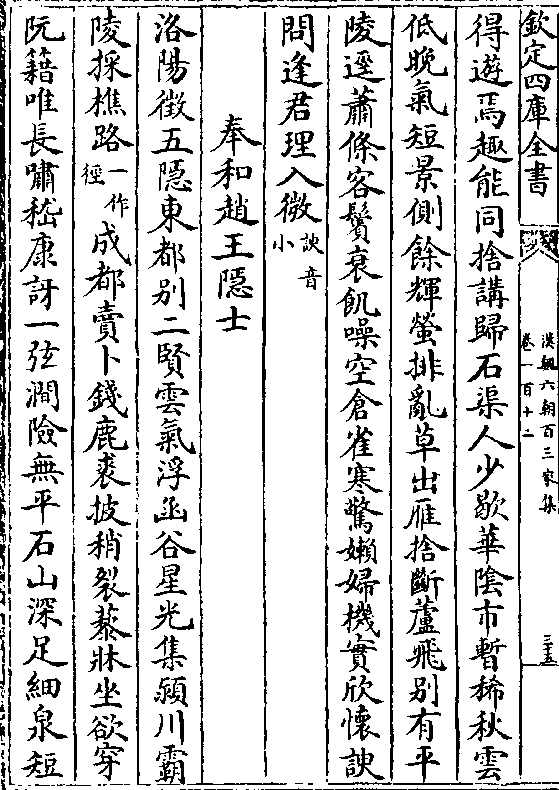 欽定四庫全書
漢魏六朝百三家集
卷一百十二
三十五
得遊焉趣能同捨講歸石渠人少歇華陰市暫稀秋雲
低晚氣短景側餘輝螢排亂草出雁捨斷蘆飛别有平
陵逕蕭條客鬢衰飢噪空倉雀寒驚嬾婦機實欣懷諛
問逢君理入微諛音小
奉和趙王隠士
洛陽徵五隠東都别二賢雲氣浮函谷星光集潁川霸
陵採樵路一作徑成都賣卜錢鹿裘披稍裂藜牀坐欲穿
阮籍唯長嘯嵇康訝一弦澗險無平石山深足細泉短